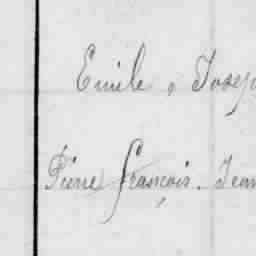 Emile, Josep
Pierre françois. Jean